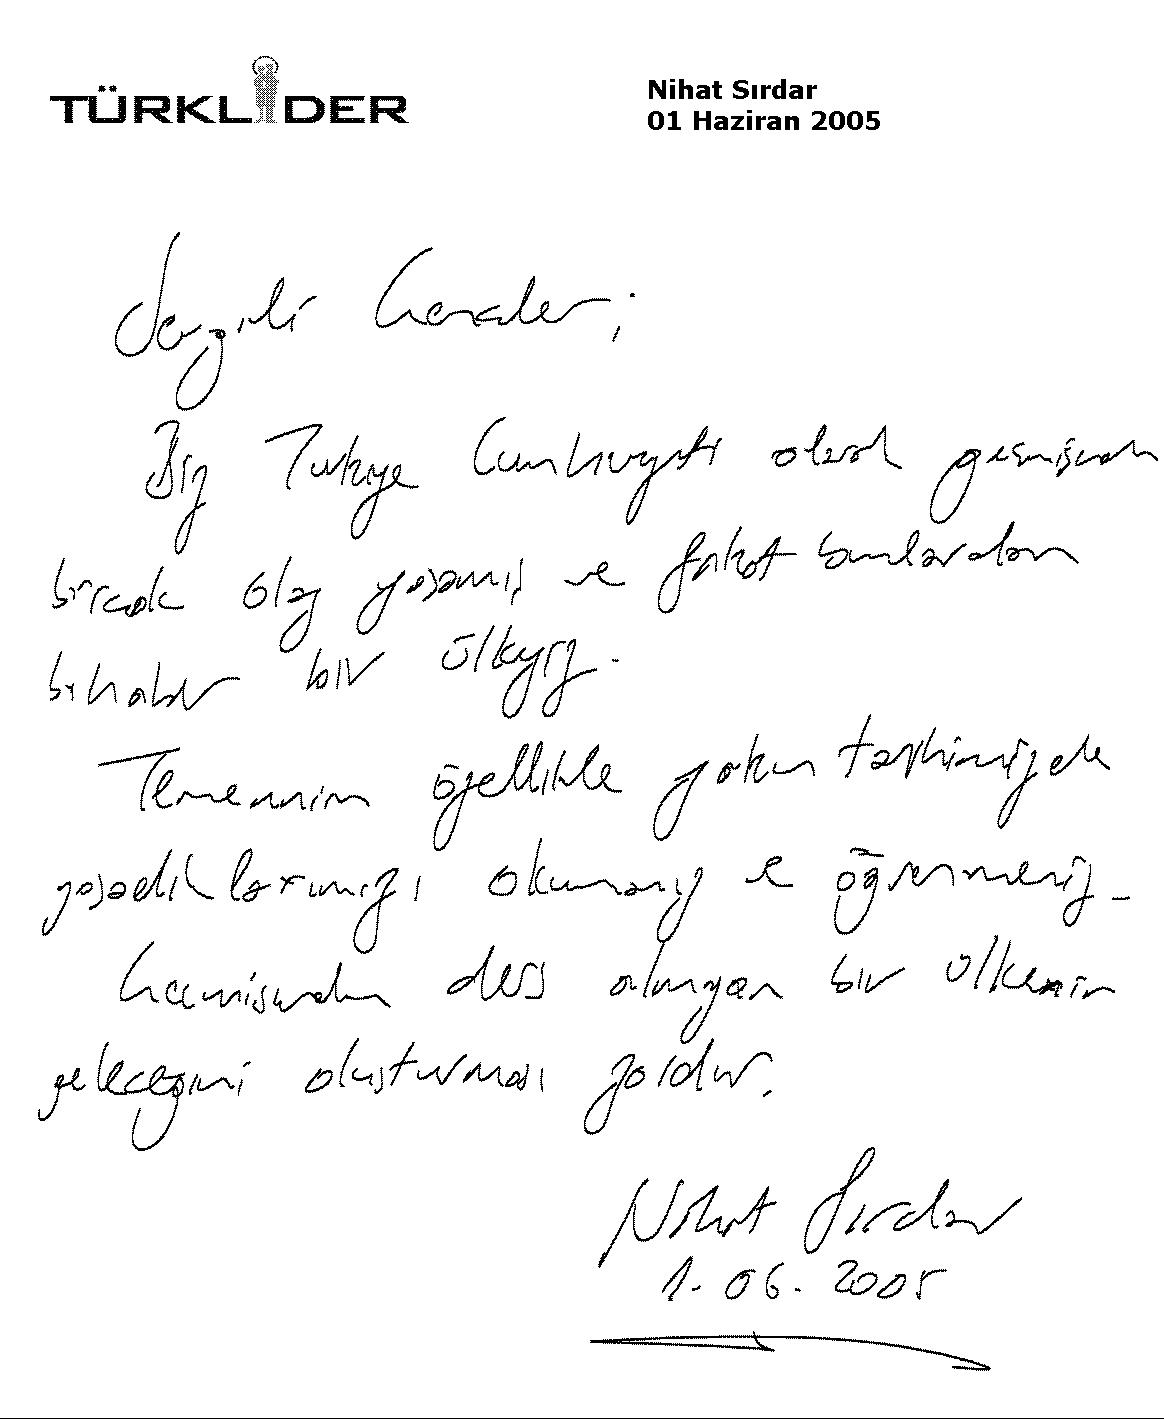 TÜRKLİDER
Nihat Sırdar
01 Haziran 2005
Sevgili Gençler;
Biz Türkiye Cumhuriyeti olarak geçmişinde
birçok olay yaşamış ve fakat bunlardan
bihaber bir ülkeyiz.
Temennim özellikle yakın tarihimizde
yaşadıklarımızı okumamız ve öğrenmemiz.
Geçmişinden ders almayan bir ülkenin
geleceğini oluşturması zordur.
Nihat Sırdar
1.06.2005